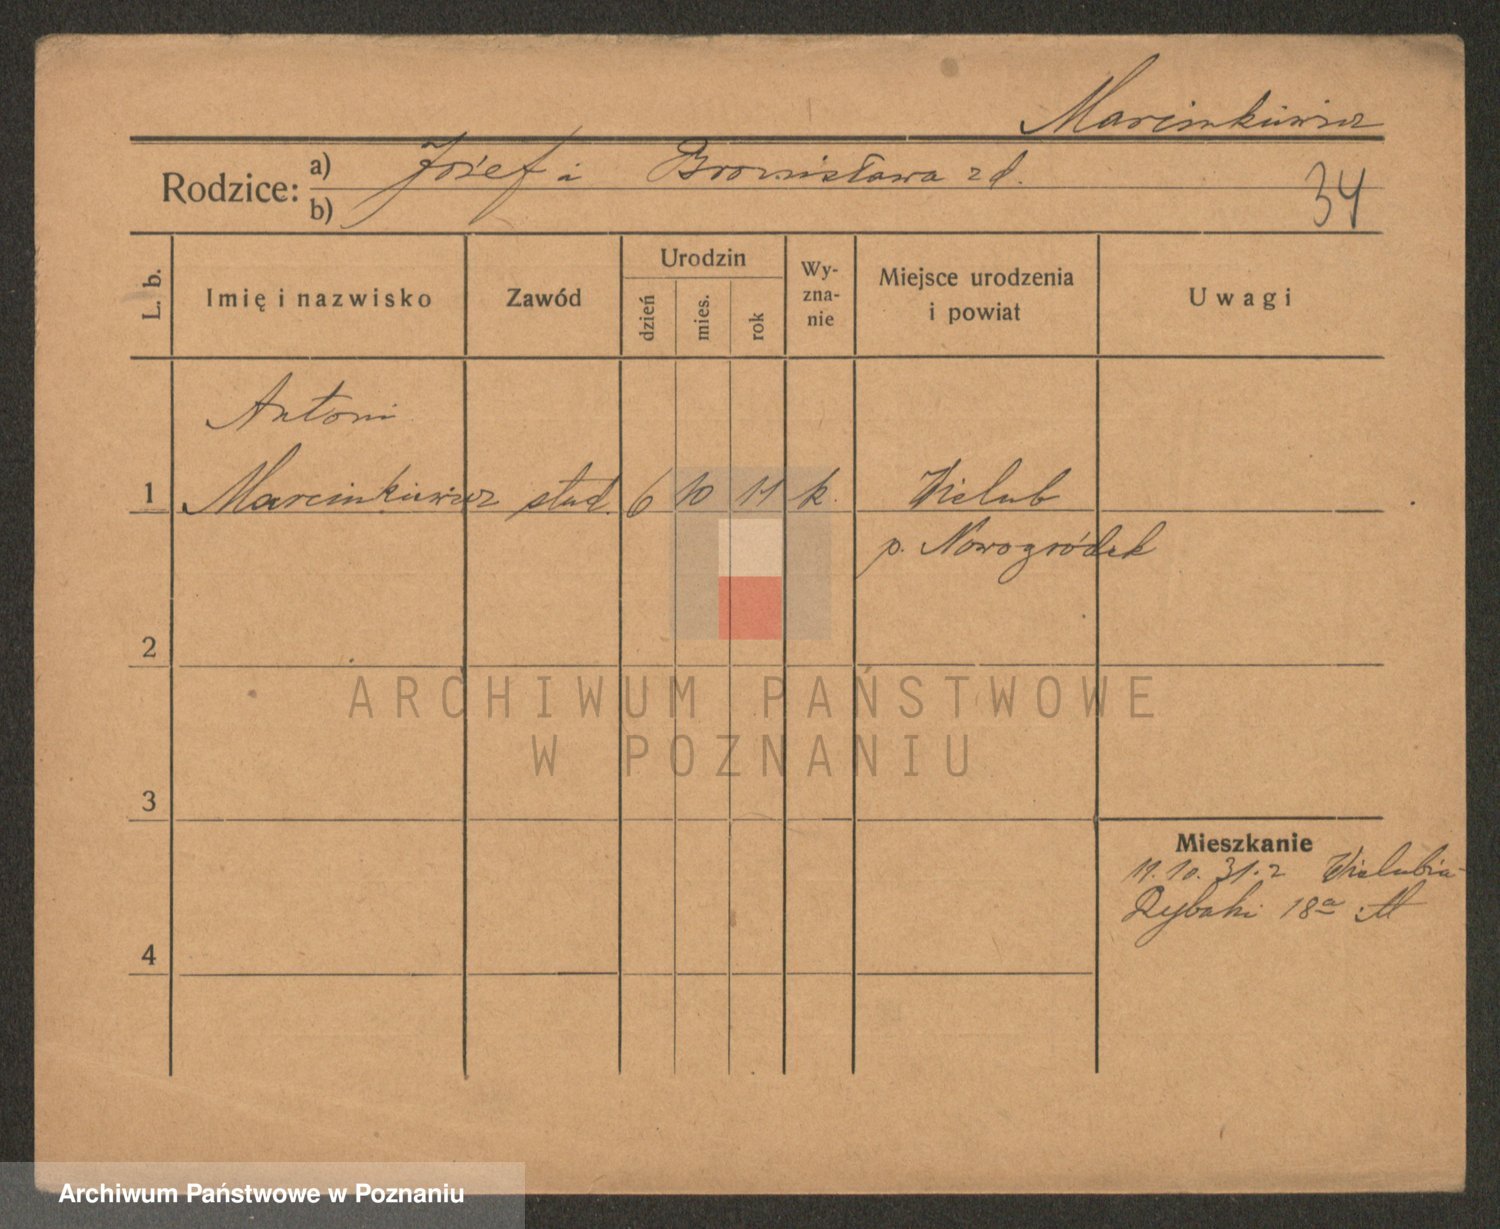 Marcinkiewicz
Rodzice: a) Józef i Bronisława zd.
b)
34
L. b.
Imię i nazwisko
Zawód
Urodzin
dzień
mies.
rok
Wy-
zna-
nie
Miejsce urodzenia
i powiat
Uwagi
Antoni
1 Marcinkiewicz stud. 6 10 11 k. Wielub
p. Nowogródek
2
3
4
Mieszkanie
11.10.31. z Wielubia
Rybaki 18a
ARCHIWUM PAŃSTWOWE
W POZNANIU
Archiwum Państwowe w Poznaniu